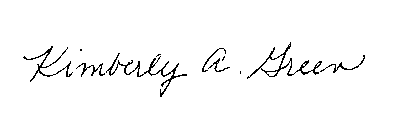 Kimberly A. Green